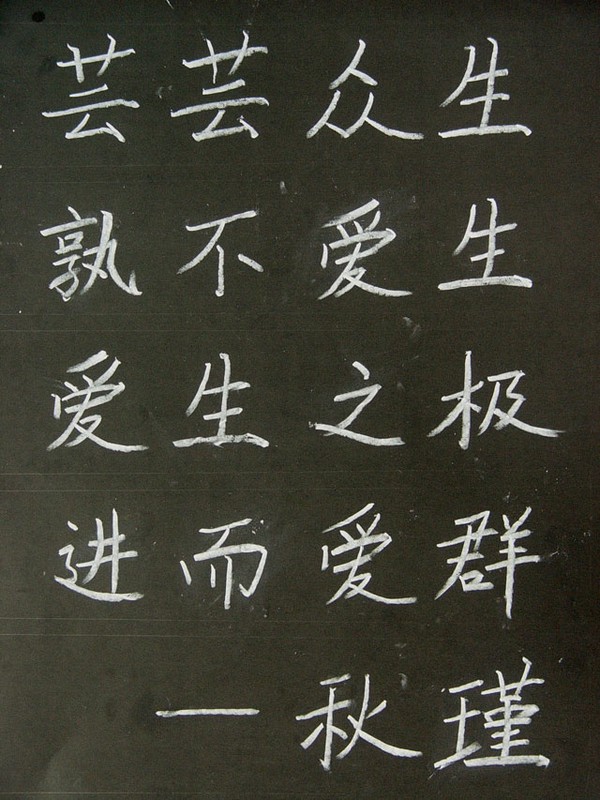 芸芸众生
孰不爱生
爱生之极
进而爱群
—秋瑾